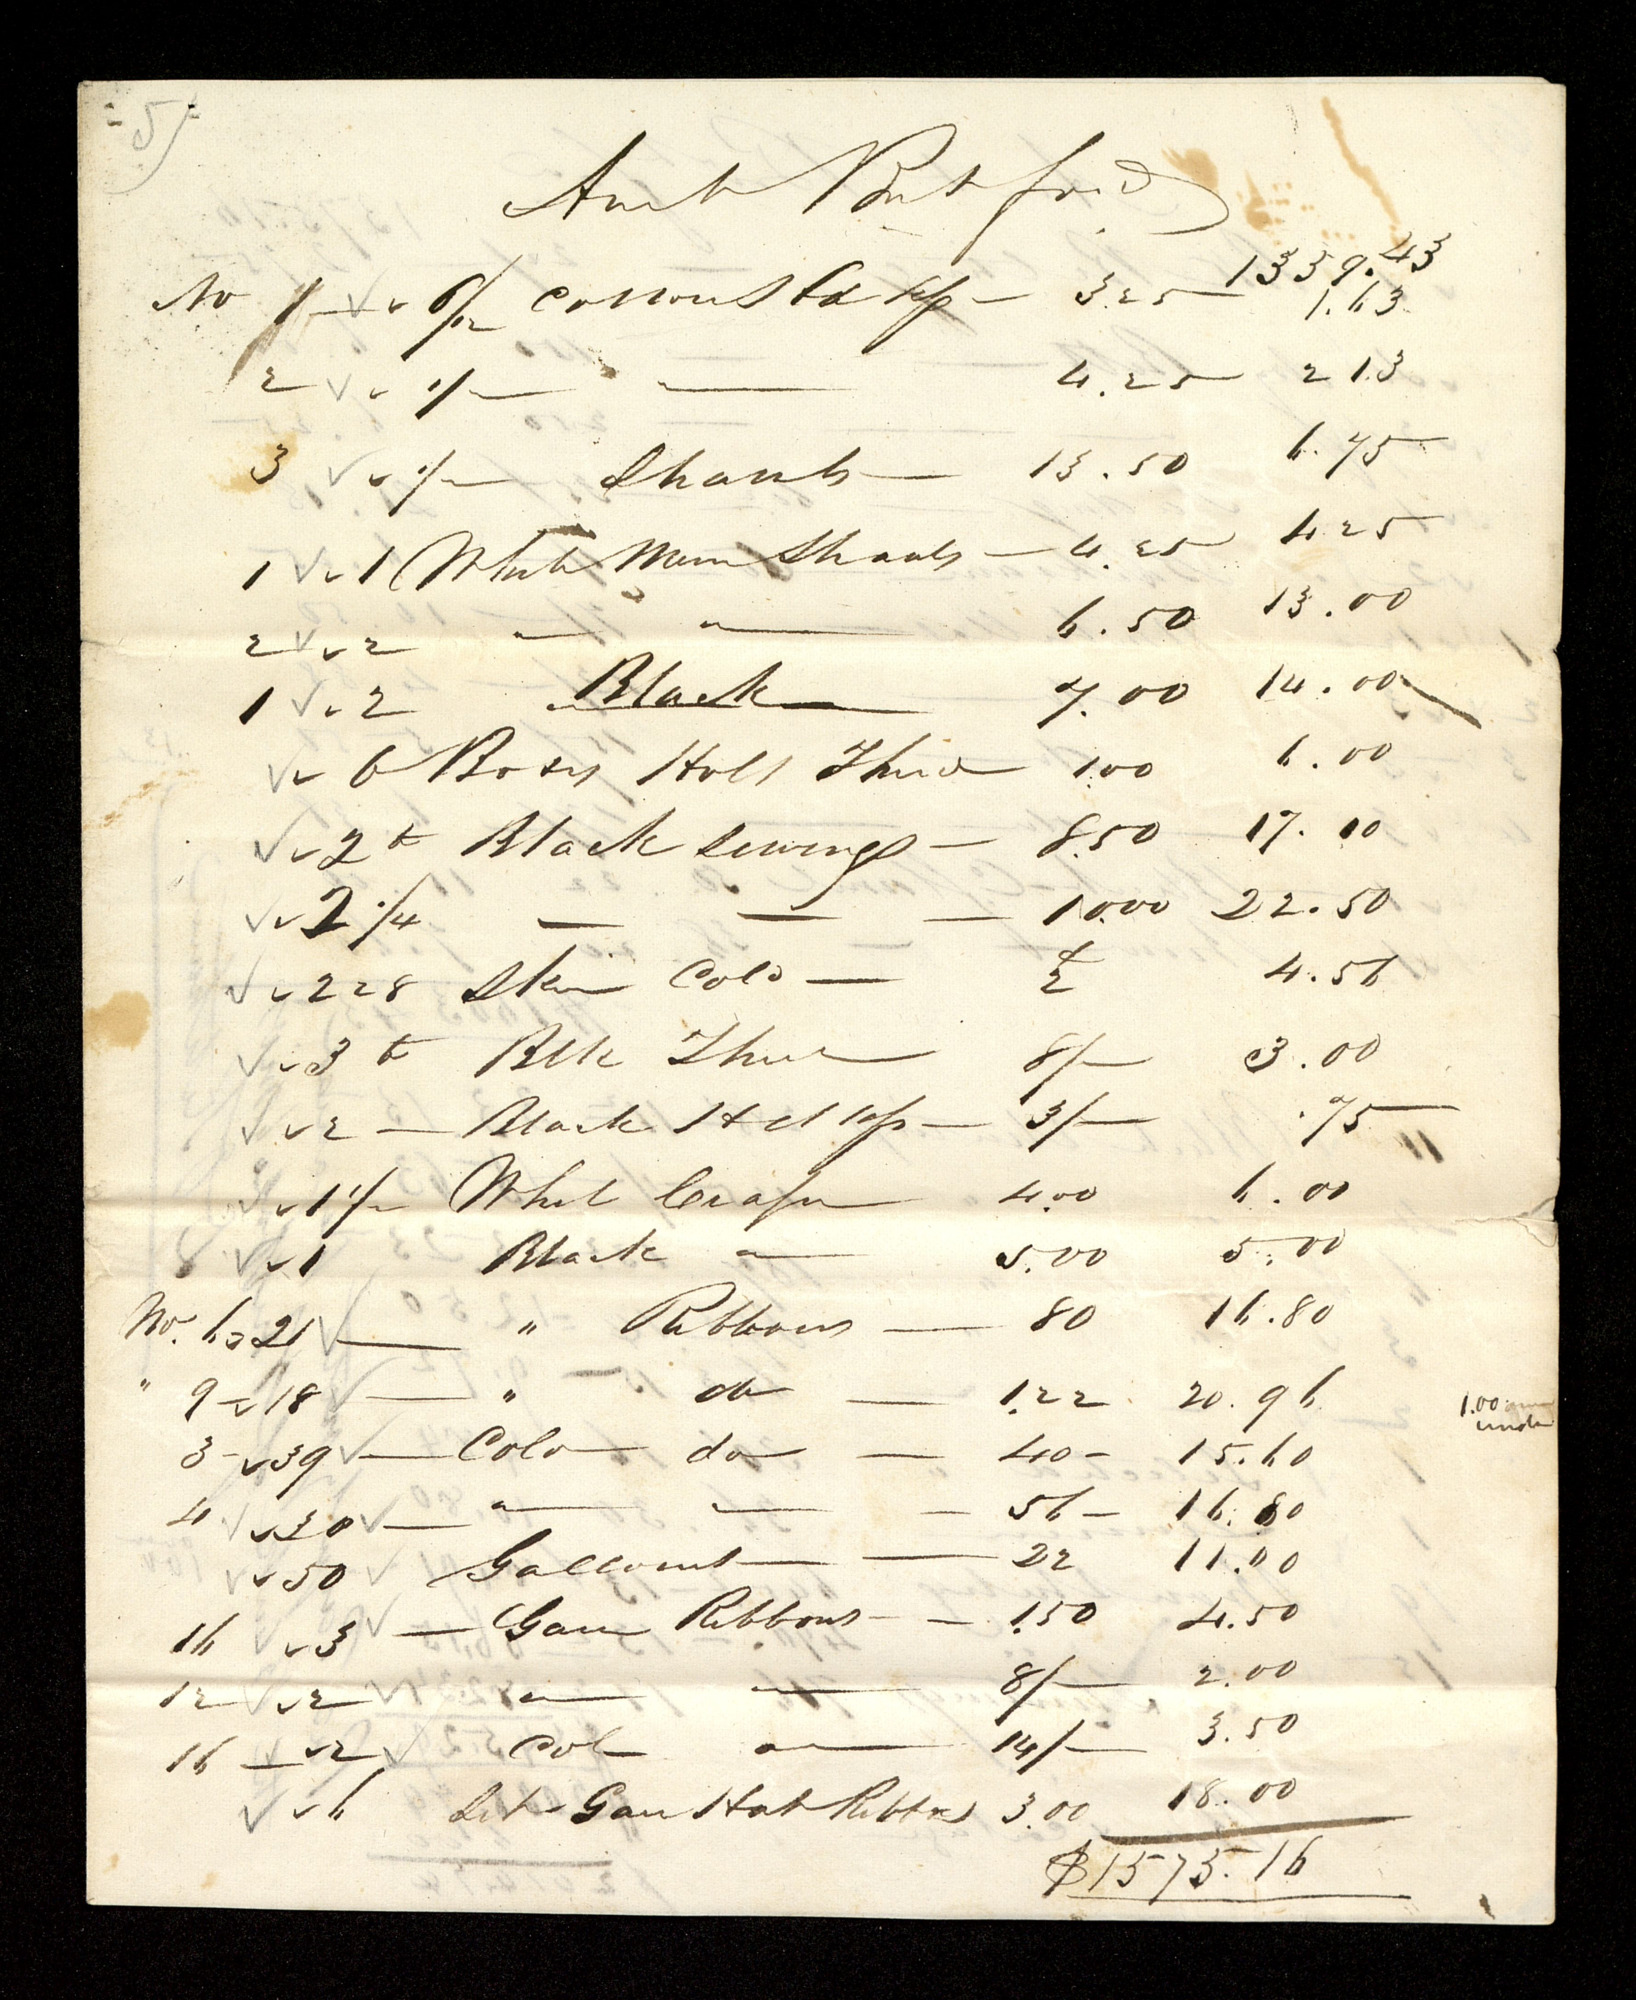 5
Amt Brot forwd 1339.43
No 1 6/12 Cotton Hdkfs 3.25 1.63
2 1/2 — 4.25 2 13
3 1/2 Shawls 13.50 6.75
1 1 White Shawls 4.25 4 25
2 2 " " 6.50 13.00
1 2 Black 7.00 14.00
6 Boxes Holl Thred 1.00 6.00
2 lb Black Sewings 8.50 17.00
2 1/4 — — 10.00 22.50
228 Skn Cold 2 4.56
3 lb Blk Thred 8/ 3.00
2 Black Hdkfs 3/ .75
1 1/2 White Crape 4.00 6.00
1 Black " 5.00 5.00
No. 6 21 " Ribbons 80 16.80
" 9 18 " do 1.22 20.96
1.00 under
3 39 Cold do 40 15.60
4 30 " " 56 16.80
50 Galloons 22 11.00
16 3 Gauze Ribbons 1.50 4.50
12 2 " " 8/ 2.00
16 2 Col " 14/ 3.50
6 Gauze Hat Ribbons 3.00 18.00
$1575.16